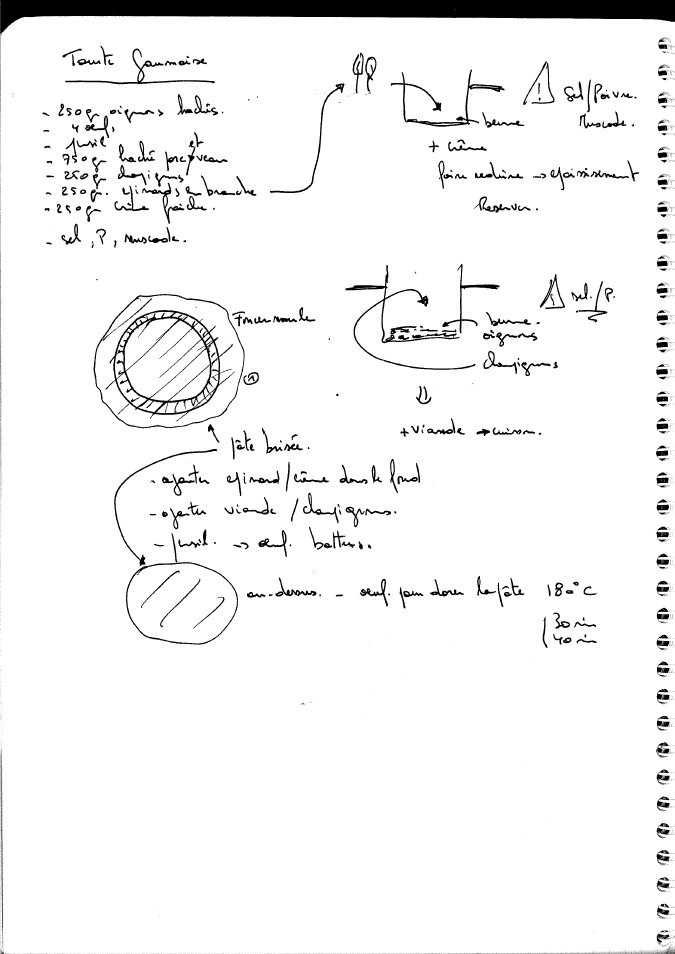 Tourte Gaumaise
- 250 gr oignons hachés.
- 4 oeufs
- persil
- 750 gr haché porc et veau
- 250 gr champignons
- 250 gr. épinards en branche
- 250 gr crème fraîche.
- sel, P, muscade.
Sel/Poivre.
Muscade.
beurre
+ crème
faire réduire → épaississement
Réserver.
Foncer moule
sel./P.
beurre.
oignons
champignons
+ viande → cuisson.
pâte brisée.
- ajouter épinard/crème dans le fond
- ajouter viande / champignons.
- persil. → oeufs battus.
au-dessus. - oeuf. pour dorer la pâte 180°C
30 min
40 min